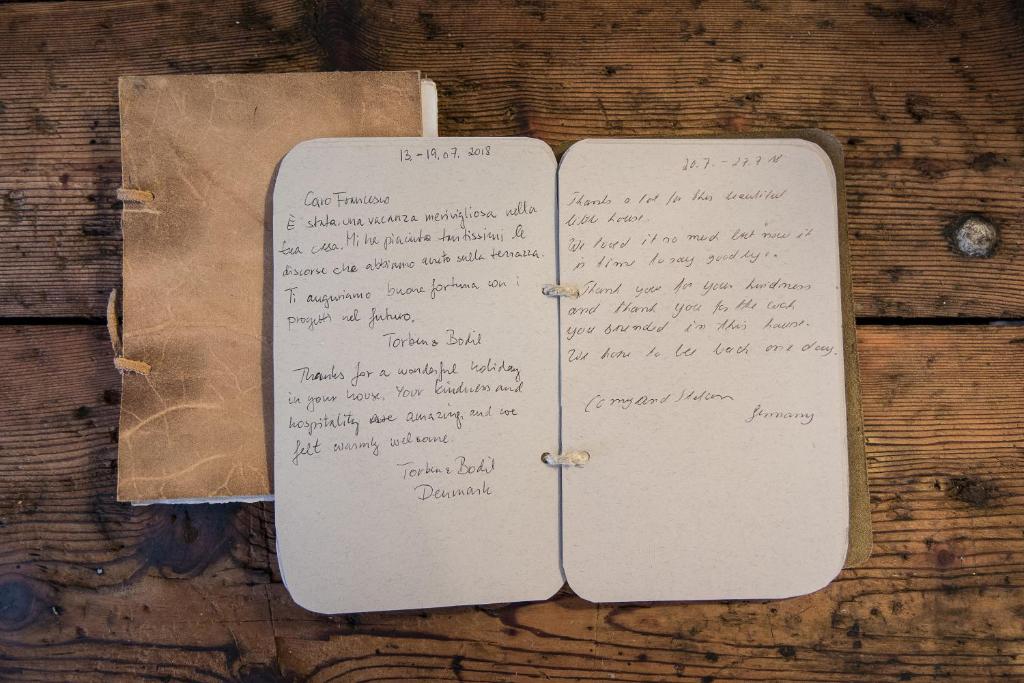 13.-19.07.2018
Caro Francesco
È stata una vacanza merivigliosa nella
tua casa. Mi ha piaciuto tantissimi le
discorse che abbiamo avuto sulla terrazza.
Ti auguriamo buona fortuna con i
progetti nel futuro.
Torben & Bodil
Thanks for a wonderful holiday
in your house. Your kindness and
hospitality are amazing and we
felt warmly welcome.
Torben & Bodil
Denmark
20.7.-27.7.18
Thanks a lot for this beautiful
little house.
We loved it so much but now it
is time to say goodbye.
Thank you for your kindness
and thank you for the
you in this house.
We hope to be back one day.
and
Germany